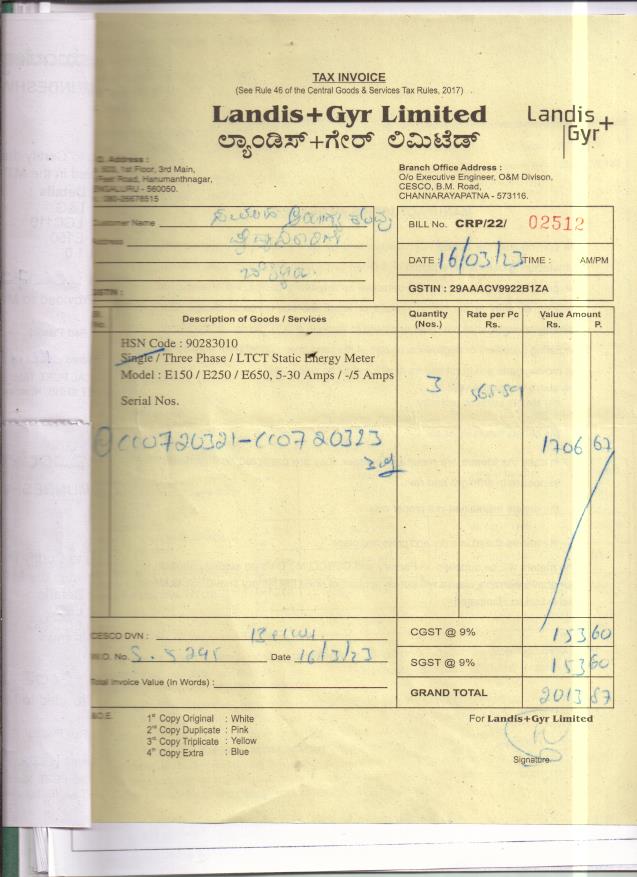 TAX INVOICE
(See Rule 46 of the Central Goods & Services Tax Rules, 2017)
Landis+Gyr Limited
ಲ್ಯಾಂಡಿಸ್+ಗೇರ್ ಲಿಮಿಟೆಡ್
Landis
Gyr+
Address :
1st Floor, 3rd Main,
Feet Road, Hanumanthnagar,
- 560050.
080-26678515
Branch Office Address :
O/o Executive Engineer, O&M Divison,
CESCO, B.M. Road,
CHANNARAYAPATNA - 573116.
Customer Name
Address
GSTIN :
BILL No. CRP/22/ 02512
DATE 16/03/23 TIME : AM/PM
GSTIN : 29AAACV9922B1ZA
No.
Description of Goods / Services
Quantity (Nos.)
Rate per Pc Rs.
Value Amount Rs. P.
HSN Code : 90283010
Single / Three Phase / LTCT Static Energy Meter
Model : E150 / E250 / E650, 5-30 Amps / -/5 Amps
3
568.89
Serial Nos.
CC0720321-CC0720323
1706 67
CESCO DVN :
CGST @ 9% 153 60
W.O. No. Date 16/3/23
SGST @ 9% 153 60
Total Invoice Value (In Words) :
GRAND TOTAL 2013 87
1st Copy Original : White
2nd Copy Duplicate : Pink
3rd Copy Triplicate : Yellow
4th Copy Extra : Blue
For Landis+Gyr Limited
Signature.